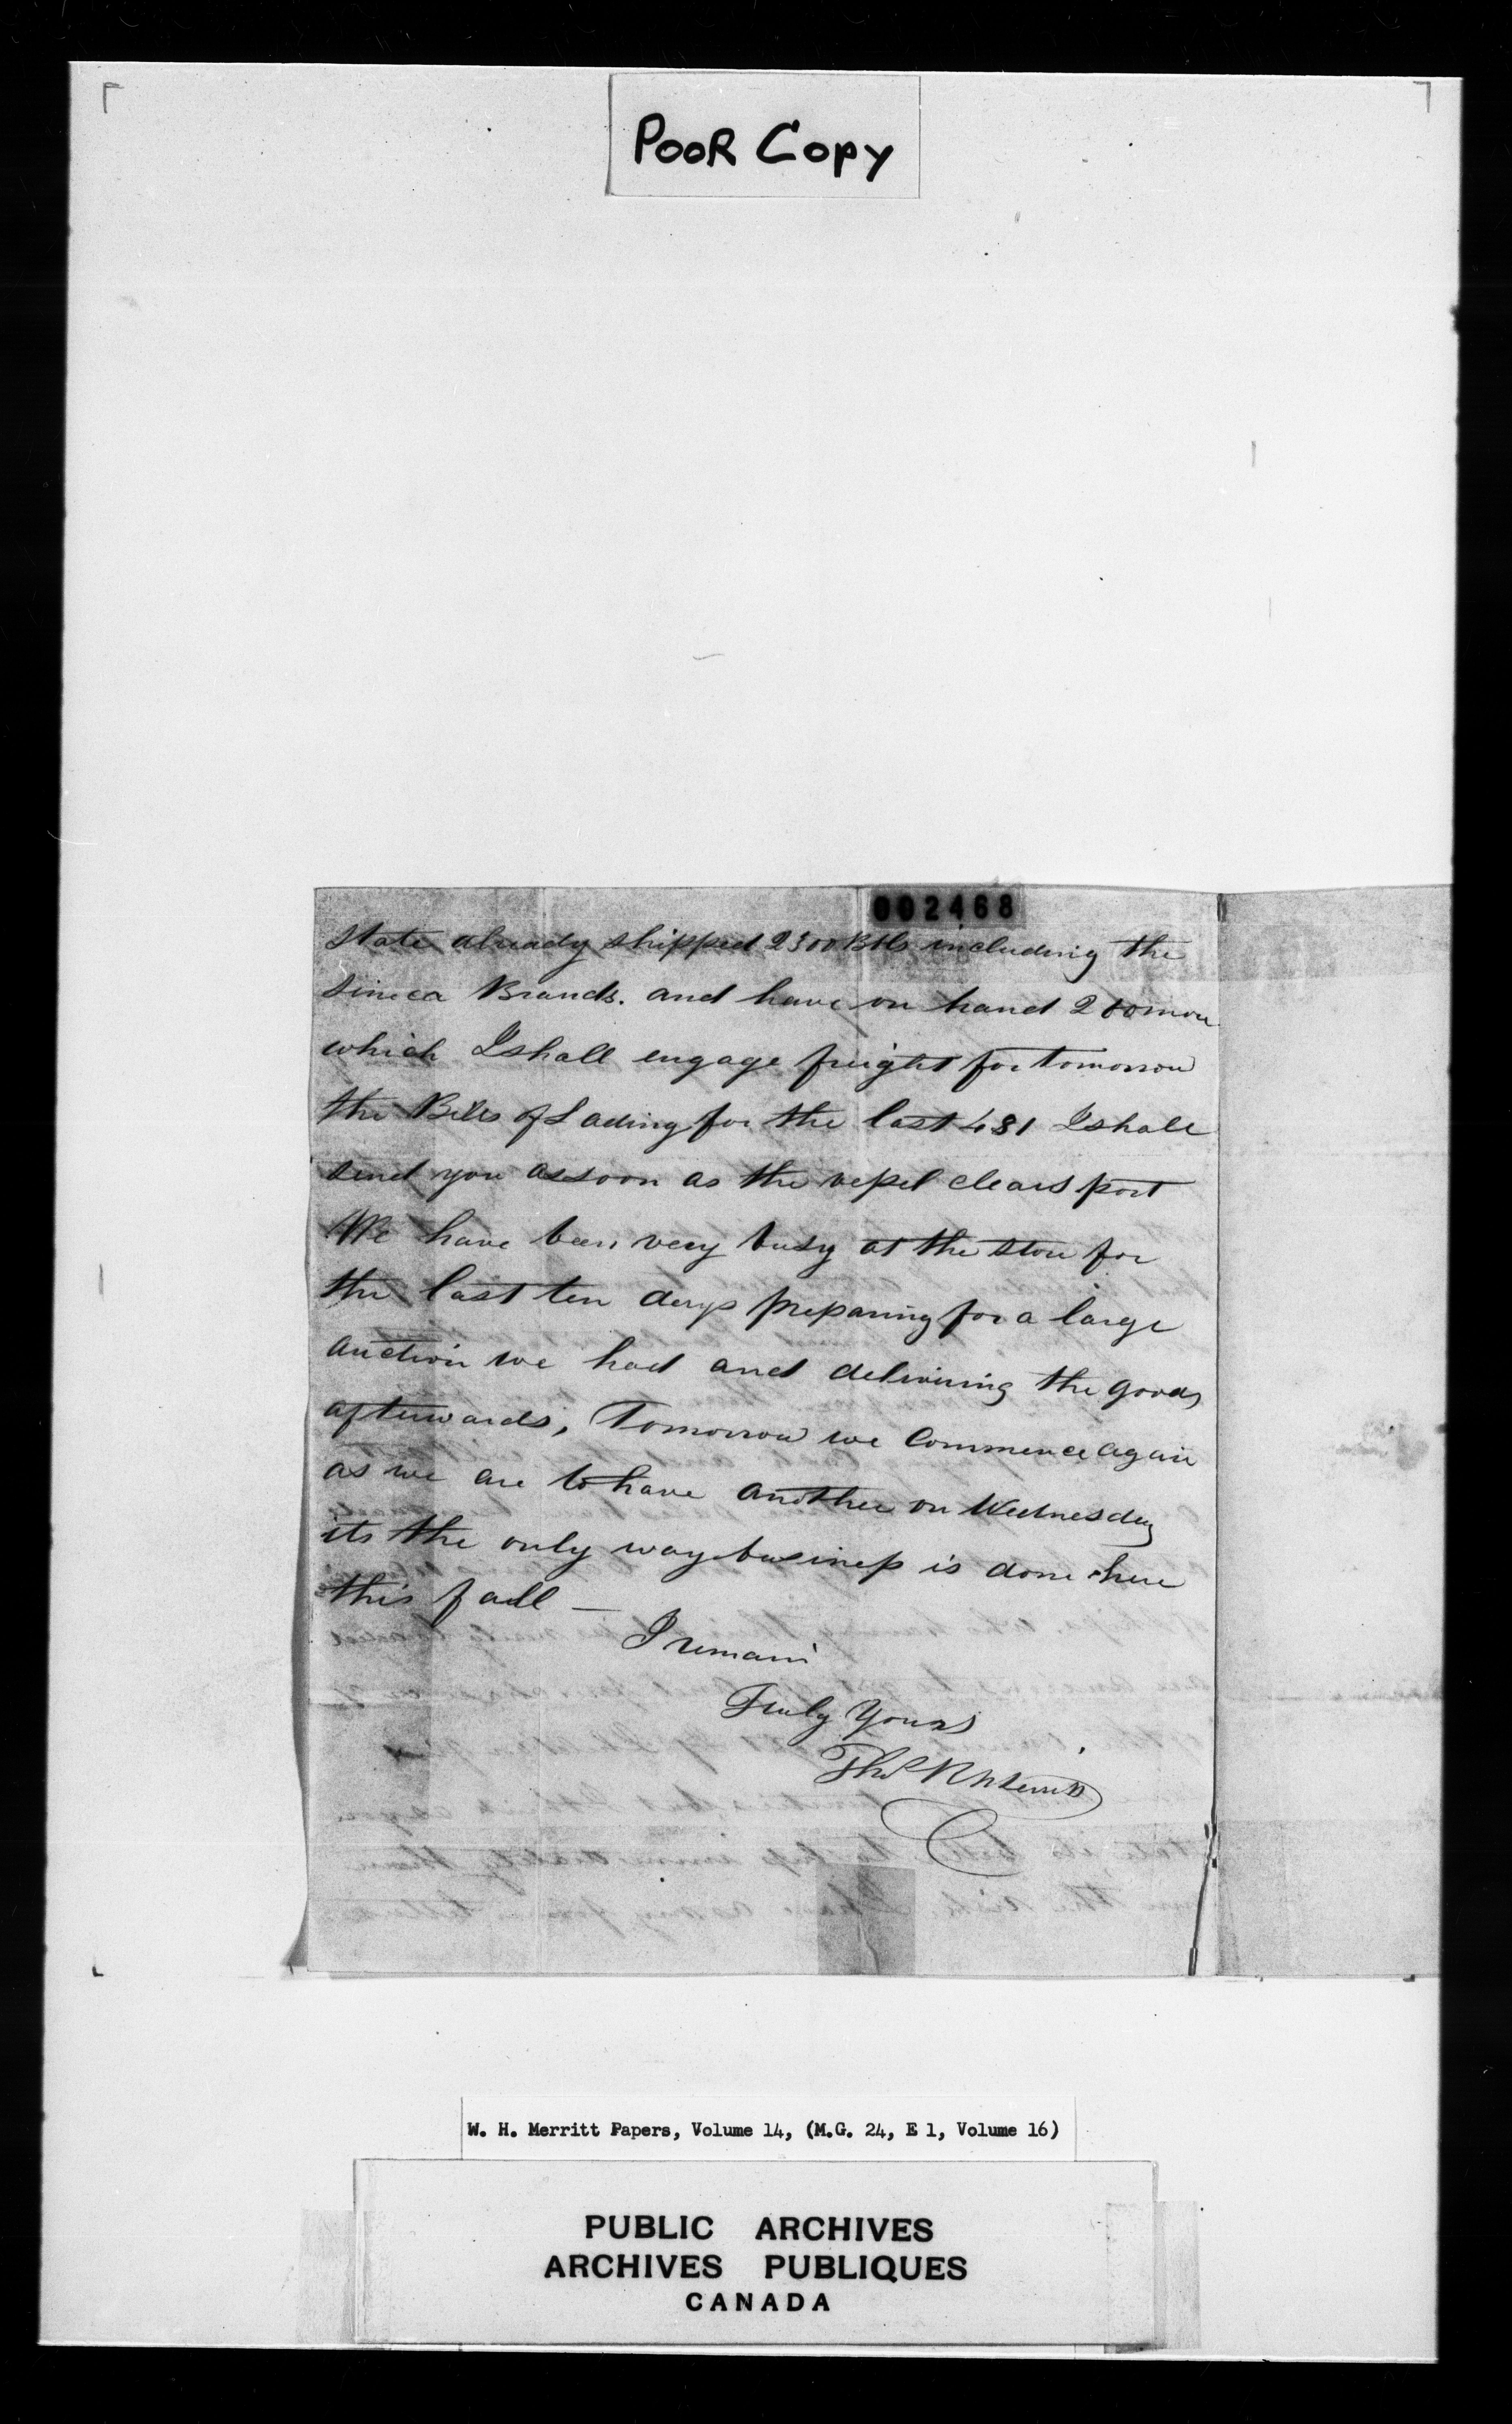 POOR Copy
002468
State already shipped 2300 Bbls including the
Seneca Brands. and have on hand 200 more
which I shall engage freight for tomorrow
the Bills of Lading for the last 481 I shall
send you as soon as the vessel clears port
We have been very busy at the store for
the last ten days preparing for a large
auction we had and delivering the goods
afterwards, Tomorrow we commence again
as we are to have another on Wednesday
its the only way business is done here
this fall —
I remain
Truly Yours
Thos R Merritt
W. H. Merritt Papers, Volume 14, (M.G. 24, E 1, Volume 16)
PUBLIC ARCHIVES
ARCHIVES PUBLIQUES
CANADA